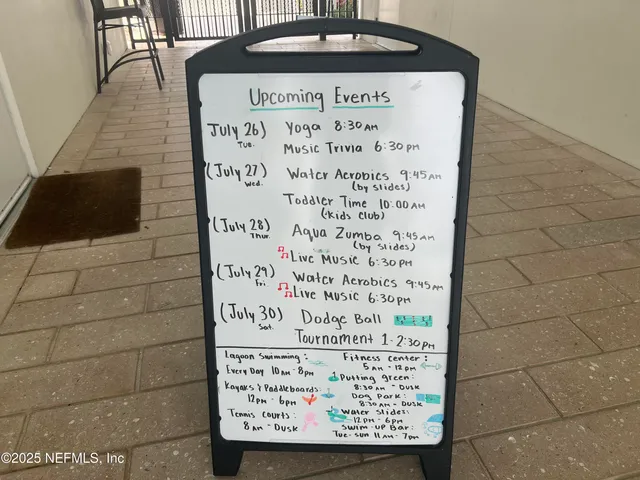 Upcoming Events
July 26) Yoga 8:30 AM
Tue.
Music Trivia 6:30 pm
(July 27) Water Aerobics 9:45 AM
Wed. (by slides)
Toddler Time 10:00 AM
(Kids Club)
(July 28) Aqua Zumba 9:45 AM
Thur. (by slides)
Live Music 6:30 pm
(July 29) Water Aerobics 9:45 AM
Fri
Live Music 6:30 pm
(July 30) Dodge Ball
Sat.
Tournament 1-2:30 pm
Lagoon Swimming:
Every Day 10 AM - 8 pm
Kayaks & Paddleboards:
12 pm - 6 pm
Tennis Courts:
8 AM - Dusk
Fitness center:
5 AM - 12 pm
Putting green:
8:30 AM - Dusk
Dog Park:
8:30 AM - Dusk
Water Slides:
12 pm - 6 pm
Swim-up Bar:
Tue - Sun 11 AM - 7 pm
©2025 NEFMLS, Inc